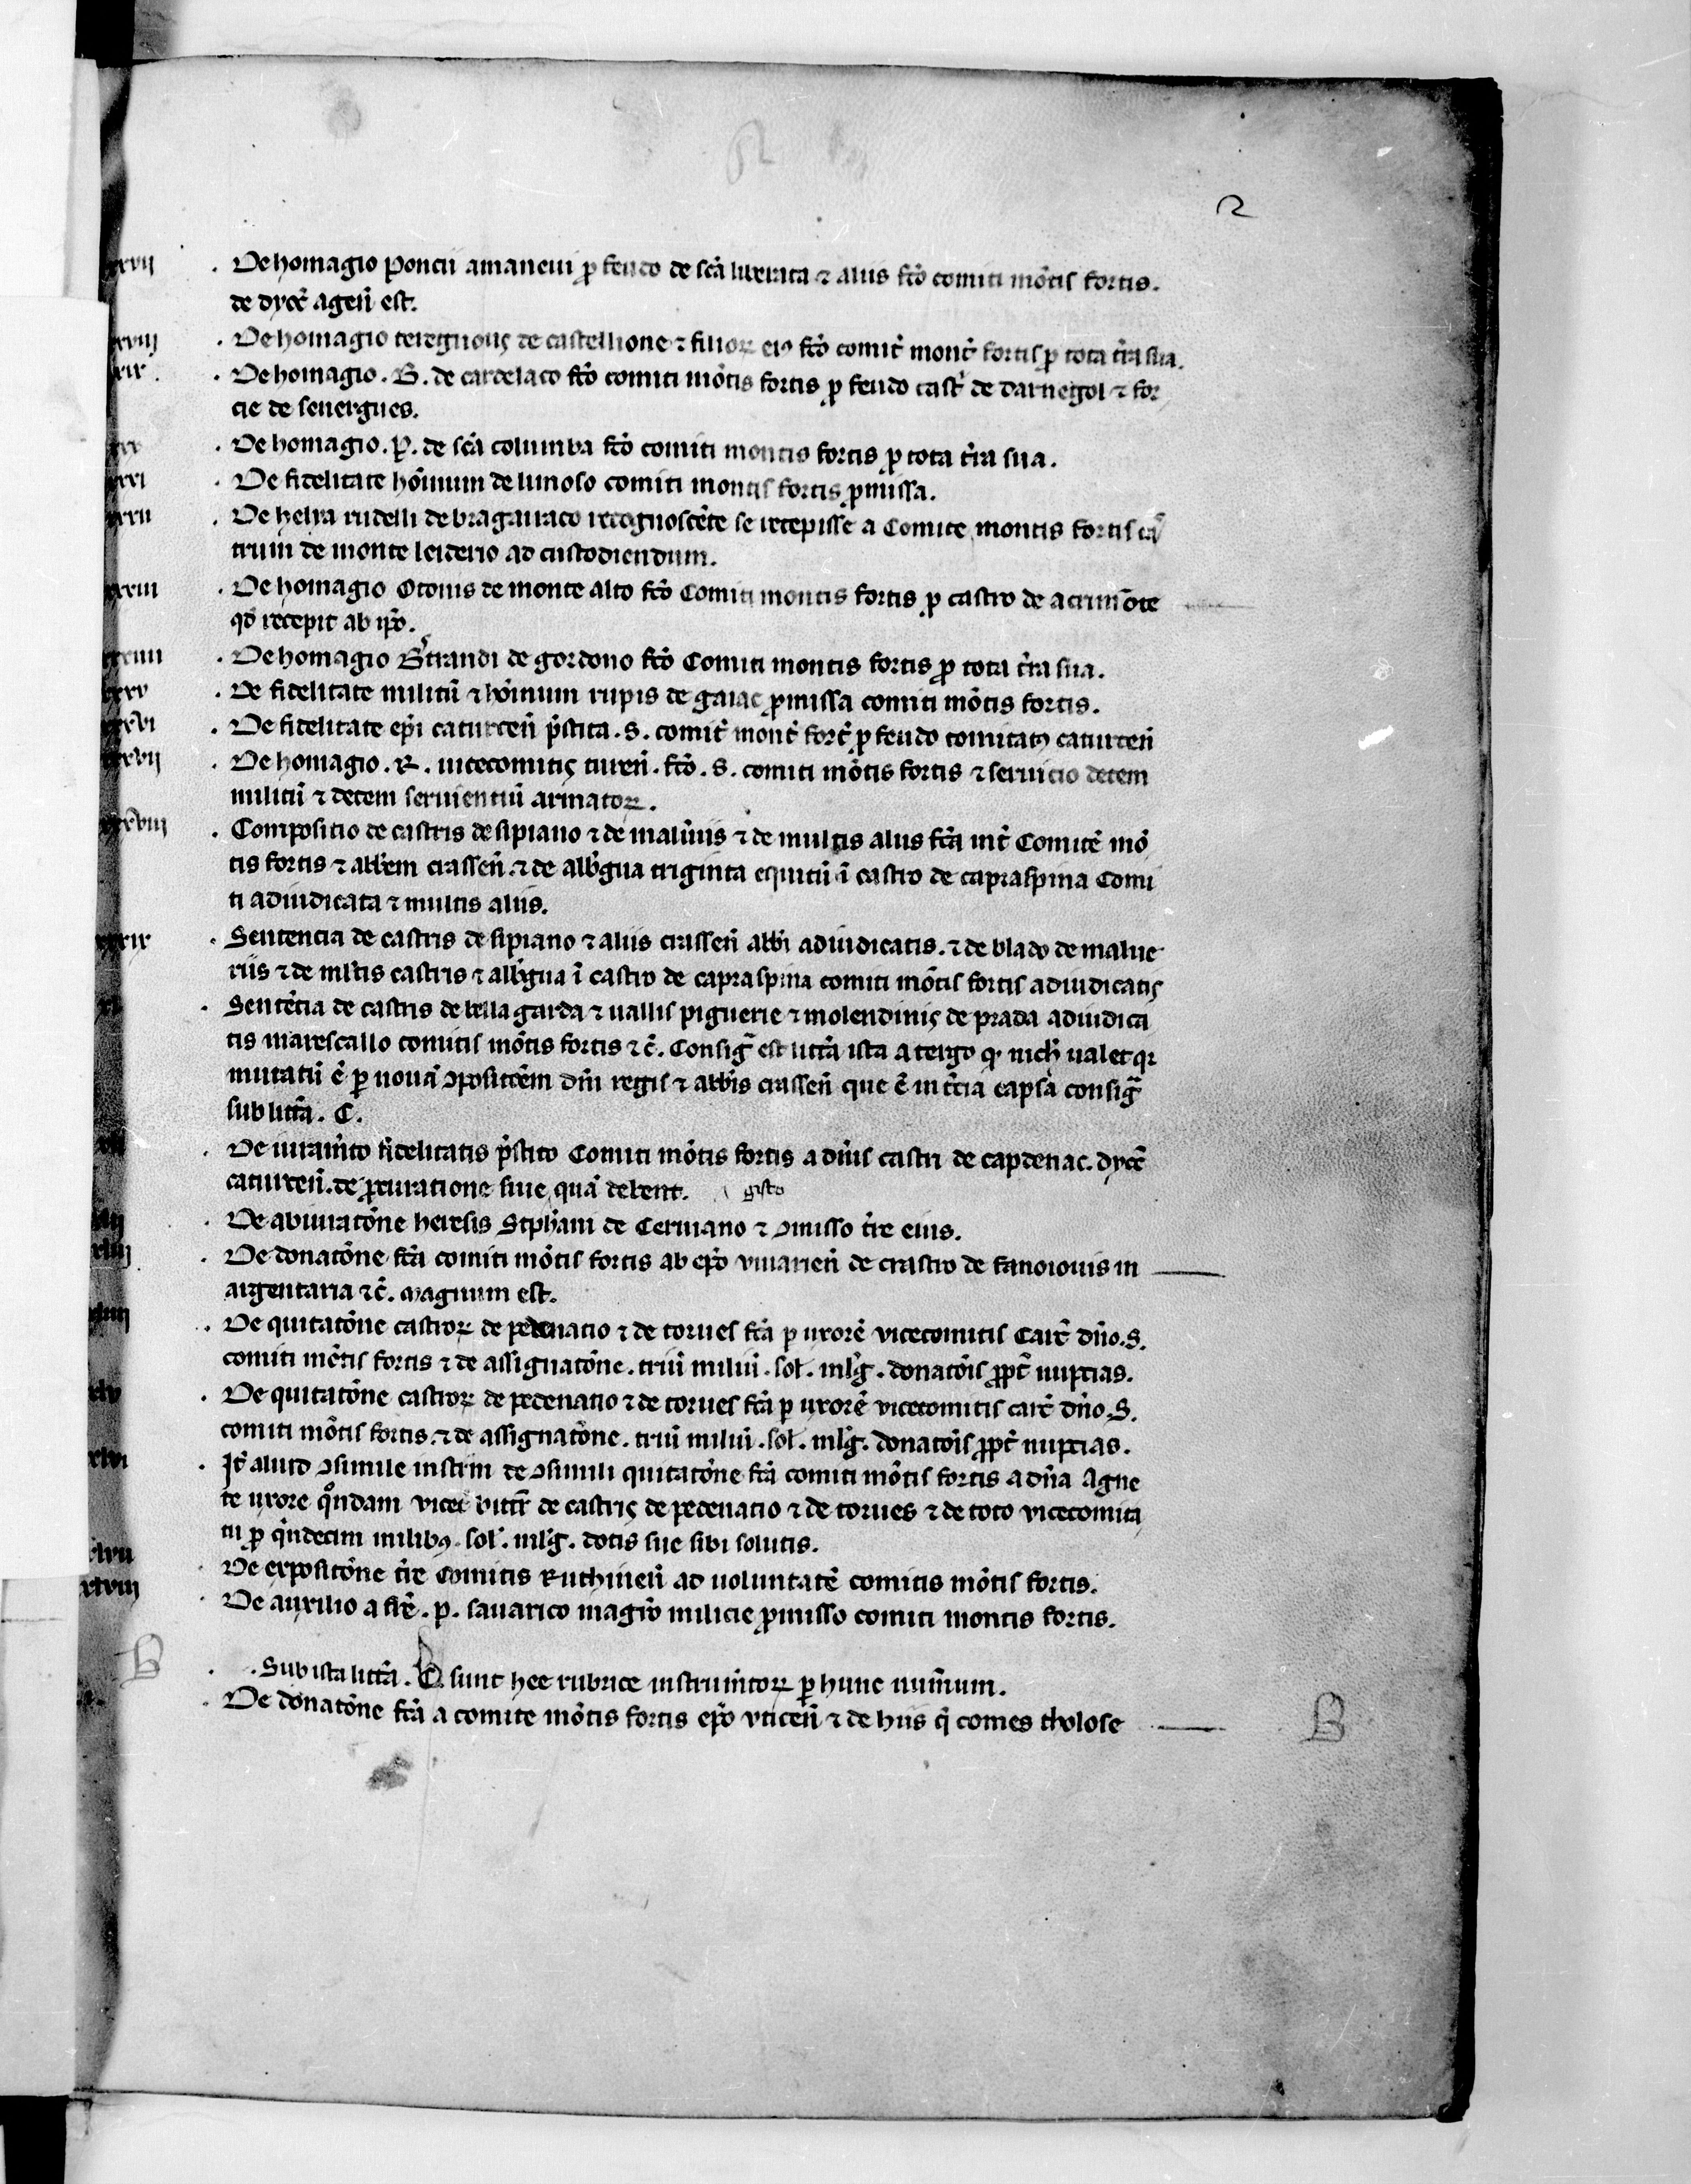 2
xxvii . De homagio Poncii amaneui p̱ feudo de sc̄a liurata ⁊ aliis fc̄o comiti mōtis fortis.
de dyoc̄ ageñ est.
xxviii . De homagio de castellione ⁊ filioꝝ eiꝰ fc̄o comit̄ mont̄ fortis p̱ tota t̄ra sua.
xxix . De homagio . B . de cardelaco fc̄o comiti mōtis fortis p̱ feudo cast̄ de darnegol ⁊ for
cie de senergues.
xxx . De homagio . P . de sc̄a columba fc̄o comiti montis fortis p̱ tota t̄ra sua .
xxxi . De fidelitate hōinum de limoso comiti montis fortis p̱missa .
xxxii . De helya rudelli de bragairaco recognoscēte se recepisse a Comite montis fortis cas
trum de monte leiderio ad custodiendum .
xxxiii . De homagio Otonis de monte alto fc̄o Comiti montis fortis p̱ castro de acrimōte
qd̄ recepit ab ip̄o .
xxxiiii . De homagio B̄trandi de gordono fc̄o Comiti montis fortis p̱ tota t̄ra sua .
xxxv . De fidelitate militū ⁊ hōinum rupis de gaiac p̱missa comiti mōtis fortis .
xxxvi . De fidelitate ep̄i caturceñ p̄stita . S . comit̄ mont̄ fort̄ p̱ feudo comitatꝰ caturceñ
xxxvii . De homagio . R . uicecomitis tureñ . fc̄o . S . comiti mōtis fortis ⁊ seruicio decem
militū ⁊ decem seruientiū armatoꝝ .
xxxviii . Compositio de castris de sipiano ⁊ de maluīis ⁊ de multis aliis fc̄a int̄ Comitē mō
tis fortis ⁊ abb̄em crasseñ . ⁊ de alb̄gua triginta equitū ī castro de capraspina Comi
ti adiudicata ⁊ multis aliis .
xxxix . Sentencia de castris de sipiano ⁊ aliis crasseñ abb̄i adiudicatis . ⁊ de blado de malue
riis ⁊ de ml̄tis castris ⁊ alb̄gua ī castro de capraspina comiti mōtis fortis adiudicatis
xl . Sentēcia de castris de bella garda ⁊ uallis piguerie ⁊ molendinis de prada adiudica
tis marescallo comitis mōtis fortis ⁊ c̄ . Consig̃ est litt̄a ista a tergo q̱ nich̄ ualet qꝛ
mutatū ē p̱ nouā ꝯpositōem dn̄i regis ⁊ abb̄is crasseñ que ē in t̄cia capsa consig̃
sub litt̄a . C .
xli . De iuram̄to fidelitatis p̄stito Comiti mōtis fortis a dn̄is castri de capdenac . dyoc̄
caturceñ . de p̱curatione siue quā debent . gisto
xlii . De abiuratōne heresis Steph̄ani de Ceruiano ⁊ ꝯmisso t̄re eius .
xliii . De donatōne fc̄a comiti mōtis fortis ab ep̄o viuarieñ de crastro de fanoiouis in
argentaria ⁊ c̄ . magnum est .
xliiii . De quitatōne castroꝝ de pedenatio ⁊ de torues fc̄a p̱ uxorē vicecomitis Carc̄ dn̄o . S .
comiti mōtis fortis ⁊ de assignatōne . triū miliū . sol̄ . ml̄g̃ . donatōis p̱pt̄ nuptias .
xlv . De quitatōne castroꝝ de pedenatio ⁊ de torues fc̄a p̱ uxorē vicecomitis carc̄ dn̄o . S .
comiti mōtis fortis . ⁊ de assignatōne . triū miliū . sol̄ . ml̄g̃ . donatōis p̱pt̄ nuptias .
xlvi . It̄ aliud ꝯsimile instrm̄ de ꝯsimili quitatōne fc̄a comiti mōtis fortis a dn̄a Agne
te uxore qͦndam vicec̄ bitt̄r̄ de castris de pedenatio ⁊ de torues ⁊ de toto vicecomita
tu p̱ q̄ndecim milibꝰ . sol̄ . ml̄g̃ . dotis sue sibi solutis .
xlvii De expositōne t̄re Comitis Ruthineñ ad uoluntatē comitis mōtis fortis .
xlviii De auxilio a fr̄e . p . sauarico magr̄o milicie p̱misso comiti montis fortis .
B . Sub ista litt̄a . B sunt hee rubrice instrum̄toꝝ p̱ hunc num̄um .
. De donatōne fc̄a a comite mōtis fortis ep̄o vticeñ ⁊ de hiis q̄ comes tholose B